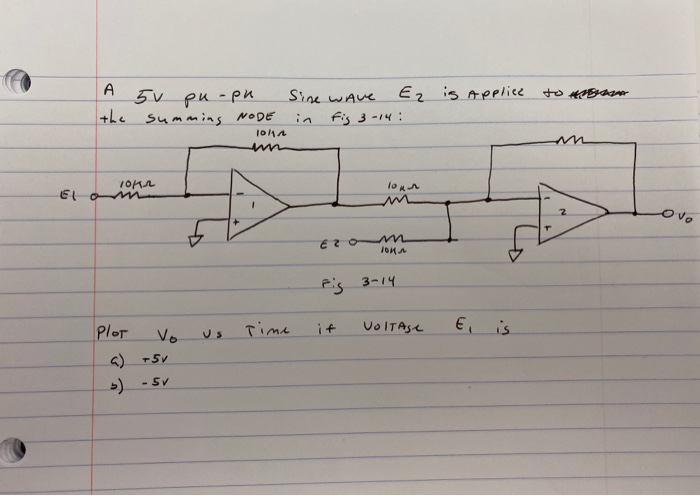 A 5V pk-pk Sine wave E2 is Applied to
the Summing NODE in Fig 3-14:
10kΩ
E1 10KΩ - 1 + 10KΩ - 2 + Vo
E2 10KΩ
Fig 3-14
Plot Vo vs Time if Voltage E1 is
a) +5V
b) -5V